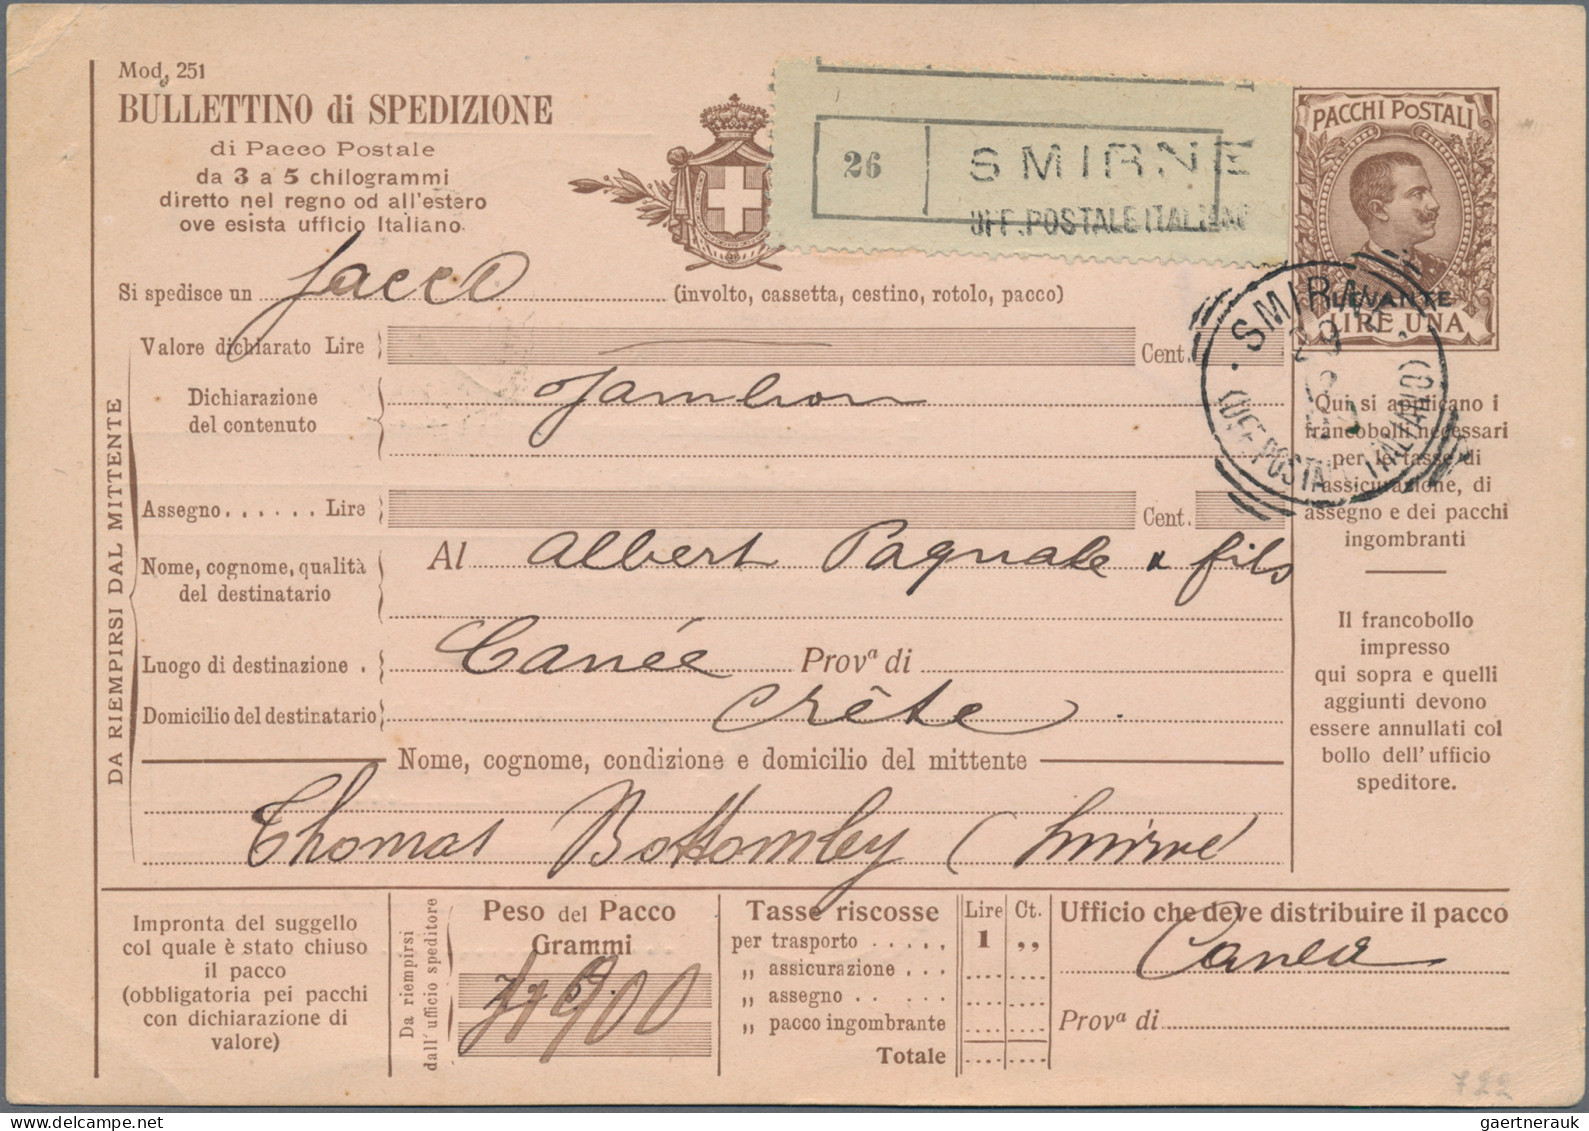 Mod. 251
BULLETTINO di SPEDIZIONE
di Pacco Postale
da 3 a 5 chilogrammi
diretto nel regno od all'estero
ove esista ufficio Italiano.
26
SMIRNE
UFF. POSTALE ITALIANO
PACCHI POSTALI
LEVANTE
LIRE UNA
SMIRNE
(UFF. POSTALE ITALIANO)
Si spedisce un (involto, cassetta, cestino, rotolo, pacco)
Valore dichiarato Lire Cent.
Dichiarazione
del contenuto
Jambon
Assegno...... Lire Cent.
Nome, cognome, qualità
del destinatario
Al Albert Paquale & fils
Luogo di destinazione . Canée Provª di
Domicilio del destinatario Crête.
Nome, cognome, condizione e domicilio del mittente
Thomas Bottomley Smirne
DA RIEMPIRSI DAL MITTENTE
Qui si applicano i
francobolli necessari
per le tasse di
assicurazione, di
assegno e dei pacchi
ingombranti
Il francobollo
impresso
qui sopra e quelli
aggiunti devono
essere annullati col
bollo dell'ufficio
speditore.
Impronta del suggello
col quale è stato chiuso
il pacco
(obbligatoria pei pacchi
con dichiarazione di
valore)
Da riempirsi
dall'ufficio speditore
Peso del Pacco
Grammi
900
Tasse riscosse Lire Ct.
per trasporto ..... 1 ,,
,, assicurazione ...
,, assegno .. ...
,, pacco ingombrante
Totale
Ufficio che deve distribuire il pacco
Canea
Provª di
722
gaertnerauk